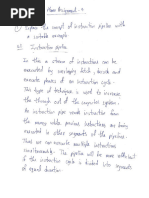 Home Assignment - 2
① Explain the concept of instruction pipeline with
a suitable example
Sol) Instruction pipeline
In this a stream of instructions can be
executed by overlapping fetch, decode and
execute phases of an instruction cycle.
This type of technique is used to increase
the through put of the computer system. An
instruction pipe reads instruction from
the memory while previous instructions are being
executed in other segments of the pipeline.
Thus we can execute multiple instructions
simultaneously. The pipeline will be more efficient
if the instruction cycle is divided into segments
of equal duration